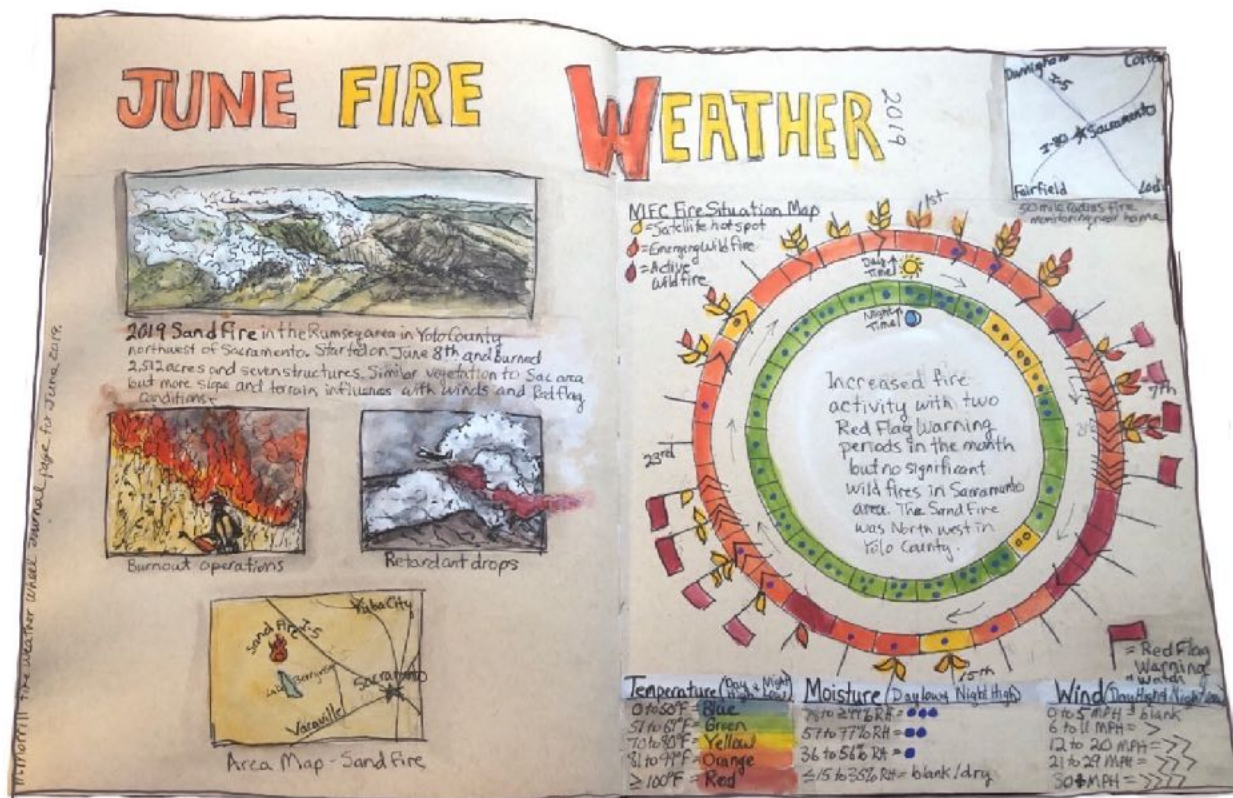 JUNE FIRE WEATHER 2019
2019 Sand Fire in the Rumsey area in Yolo County
northwest of Sacramento. Started on June 8th and burned
2,512 acres and seven structures. Similar vegetation to Sac area
but more slope and terrain influences with winds and Red Flag
conditions.
Burnout operations
Retardant drops
Yuba City
Sand Fire
I-5
Lake Berryessa
Sacramento
Vacaville
Area Map - Sand Fire
Fire weather wheel journal page for June 2019.
Dunnigan
I-5
I-80
Sacramento
Fairfield
Lodi
50 mile radius fire
monitoring near home
Fire Situation Map
= Satellite hot spot
= Emerging Wildfire
= Active
Wildfire
1st
Day
Time
Night
Time
7th
15th
23rd
Increased fire
activity with two
Red Flag Warning
periods in the month
but no significant
wild fires in Sacramento
area. The Sand Fire
was North west in
Yolo County.
= Red Flag
Warning
Temperature (Day High + Night Low)
= Blue
= Green
70 to 80°F = Yellow
= Orange
≥ 100°F = Red
Moisture (Day Low + Night High)
57 to 77% RH =
36 to 56% RH =
≤15 to 35% RH = blank/dry
Wind
0 to 5 MPH = blank
6 to 11 MPH = >
12 to 20 MPH = >>
21 to 29 MPH = >>>
30+ MPH = >>>>